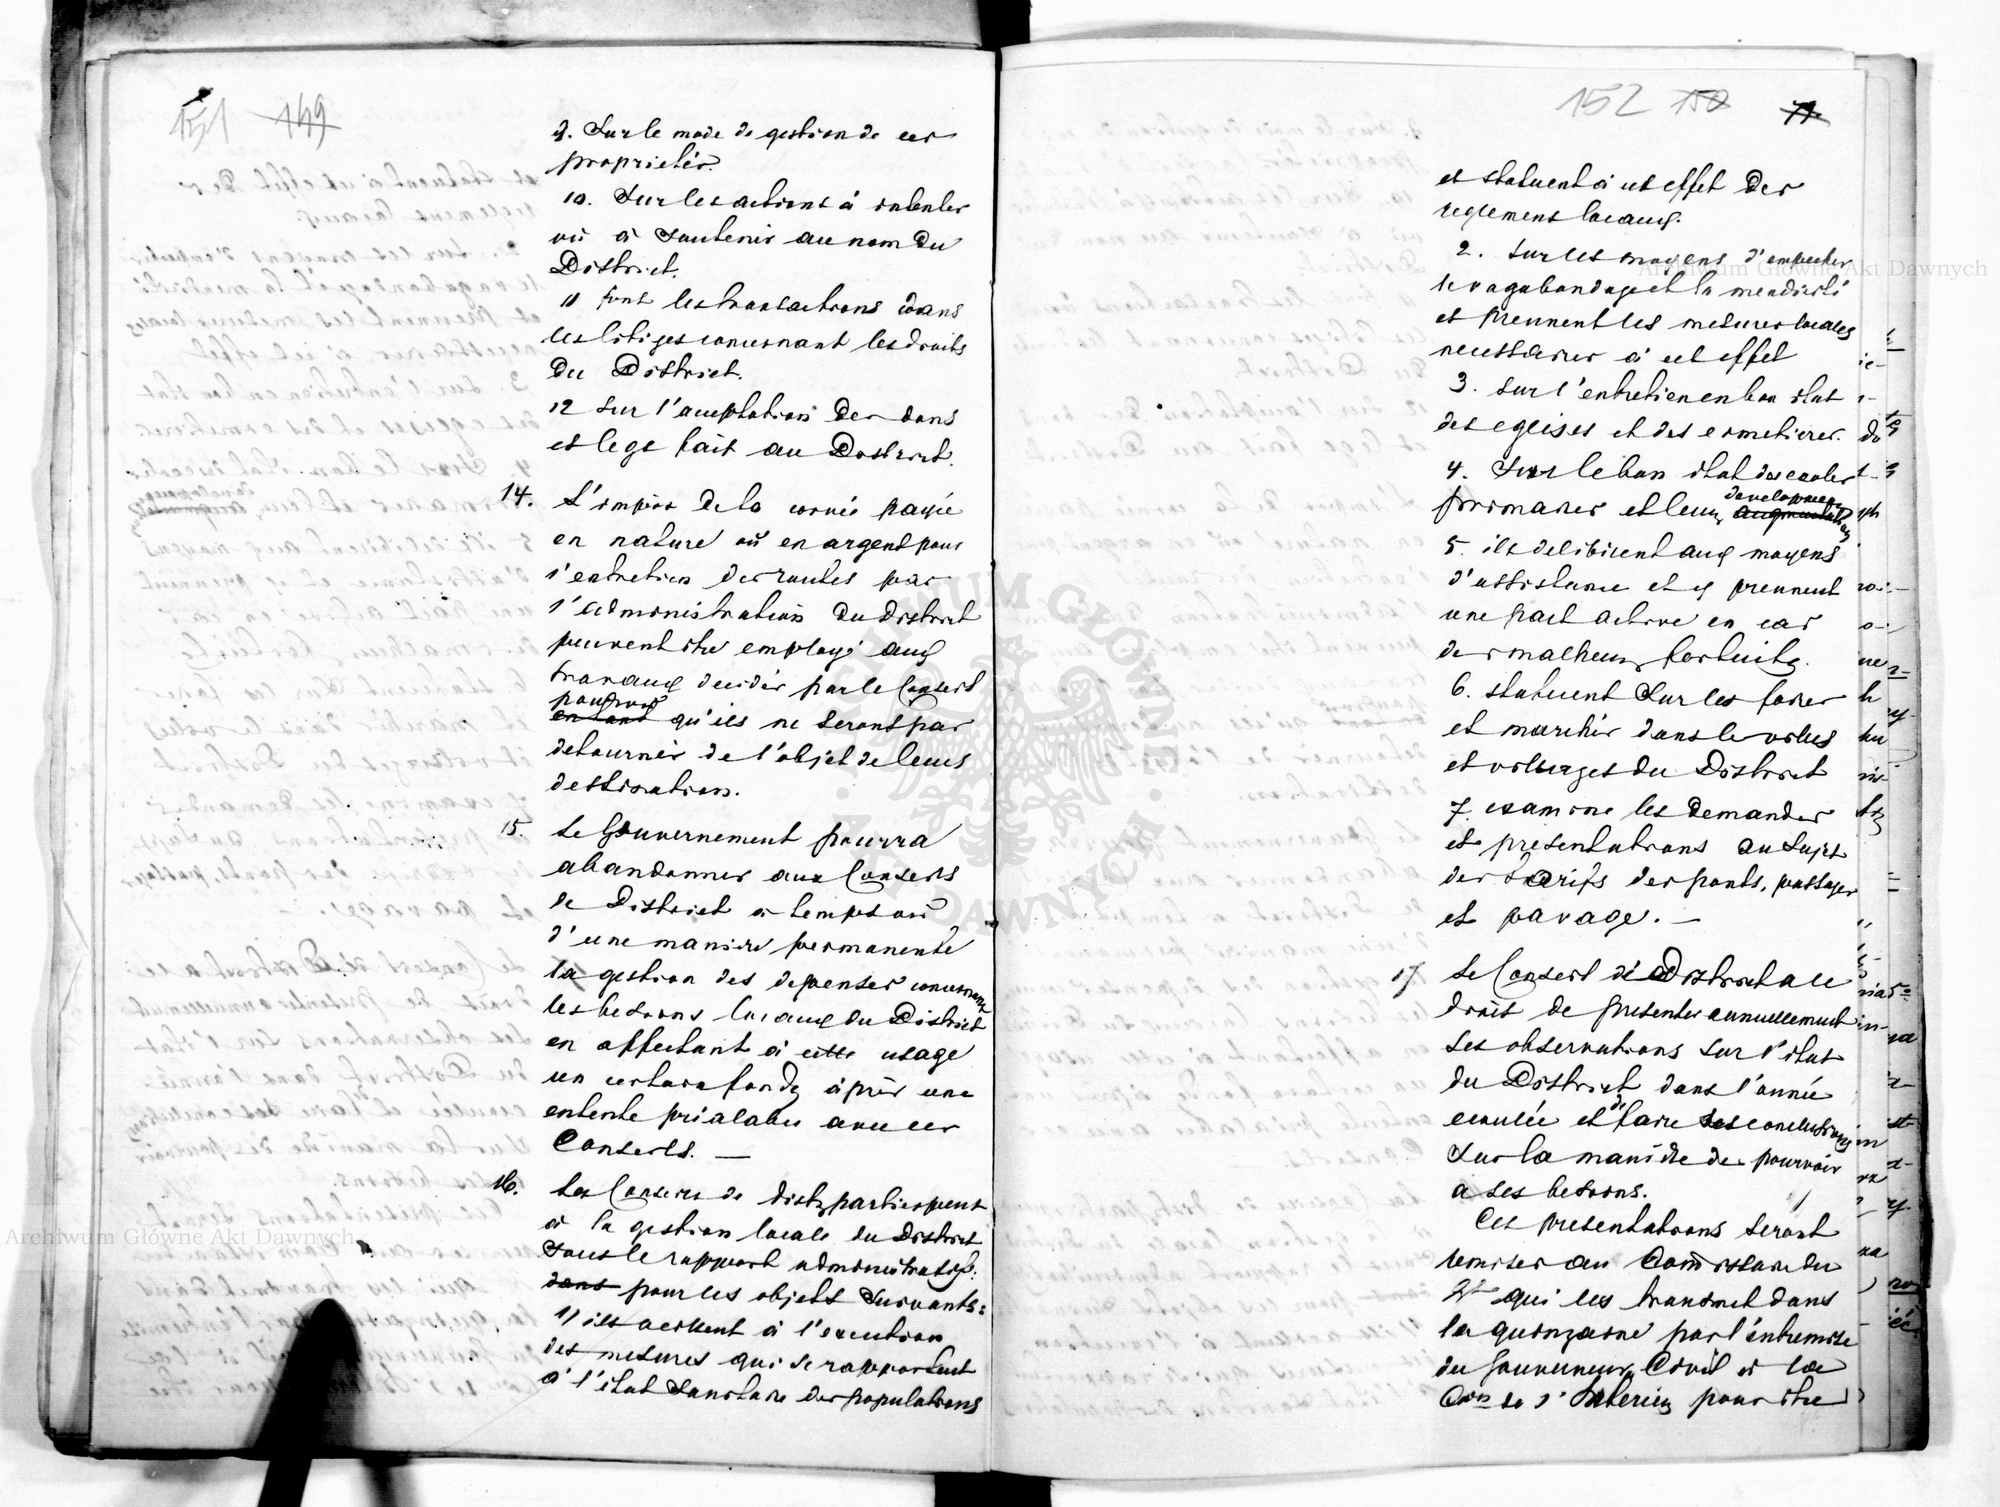 151 149
9. Sur le mode de gestion de ces
proprietés.
10. Sur les actions à intenter
où à soutenir au nom du
District.
11 sur les transactions dans
les litiges concernant les droits
du District.
12 sur l'acceptation des dons
et legs fait au District.
14. L'impôt de la corvée payée
en nature où en argent pour
l'entretien des routes par
l'administration du District
peuvent être employé aux
travaux decidés par le Conseil
pourvus
en tant qu'ils ne seront pas
detournés de l'objet de leurs
destination.
15. Le Gouvernement pourra
abandonner aux Conseils
de District à temps où
d'une maniere permanente
la gestion des depenses concernant
les besoins locaux du District
en affectant à cette usage
un certain fonds après une
entente prialable avec ces
Conseils. —
16. Les Conseils de Distr participent
à la gestion locale du District
sous le rapport administratif:
dans pour les objets suivants:
1) ils à l'execution
des mesures qui se rapportent
à l'état sanitaire des populations
152 150 71
et statuent à cet effet des
reglemens locaux.
2. sur les moyens d'empecher
le vagabondage et la mendicité
et prennent les mesures locales
necessaires à cet effet
3. sur l'entretien en bon état
des eglises et des cimetieres.
4. Sur le bon état des ecoles
developpem
primaires et leurs augmentation
5. ils deliberent aux moyens
d'assistance et y prennent
une part active en cas
des malheurs fortuits.
6. statuent sur les foires
et marchés dans le villes
et villages du District
7. examine les demandes
et presentations au sujet
des tarifs des ponts, passages
et pavage. —
17 Le Conseil de District a le
droit de presenter annuellement
ses observations sur l'état
du District dans l'année
de
ecoulée et faire ses conclusions
sur la maniere de pourvoir
a ses besoins.
Ces presentations seront
remises au Comissaire du
Dt qui les transmet dans
la quinzaine par l'entremise
du Gouverneur Civil à la
Con de l'Interieur pour être
Archiwum Główne Akt Dawnych
Archiwum Główne Akt Dawnych
ARCHIWUM GŁÓWNE · AKT DAWNYCH ·